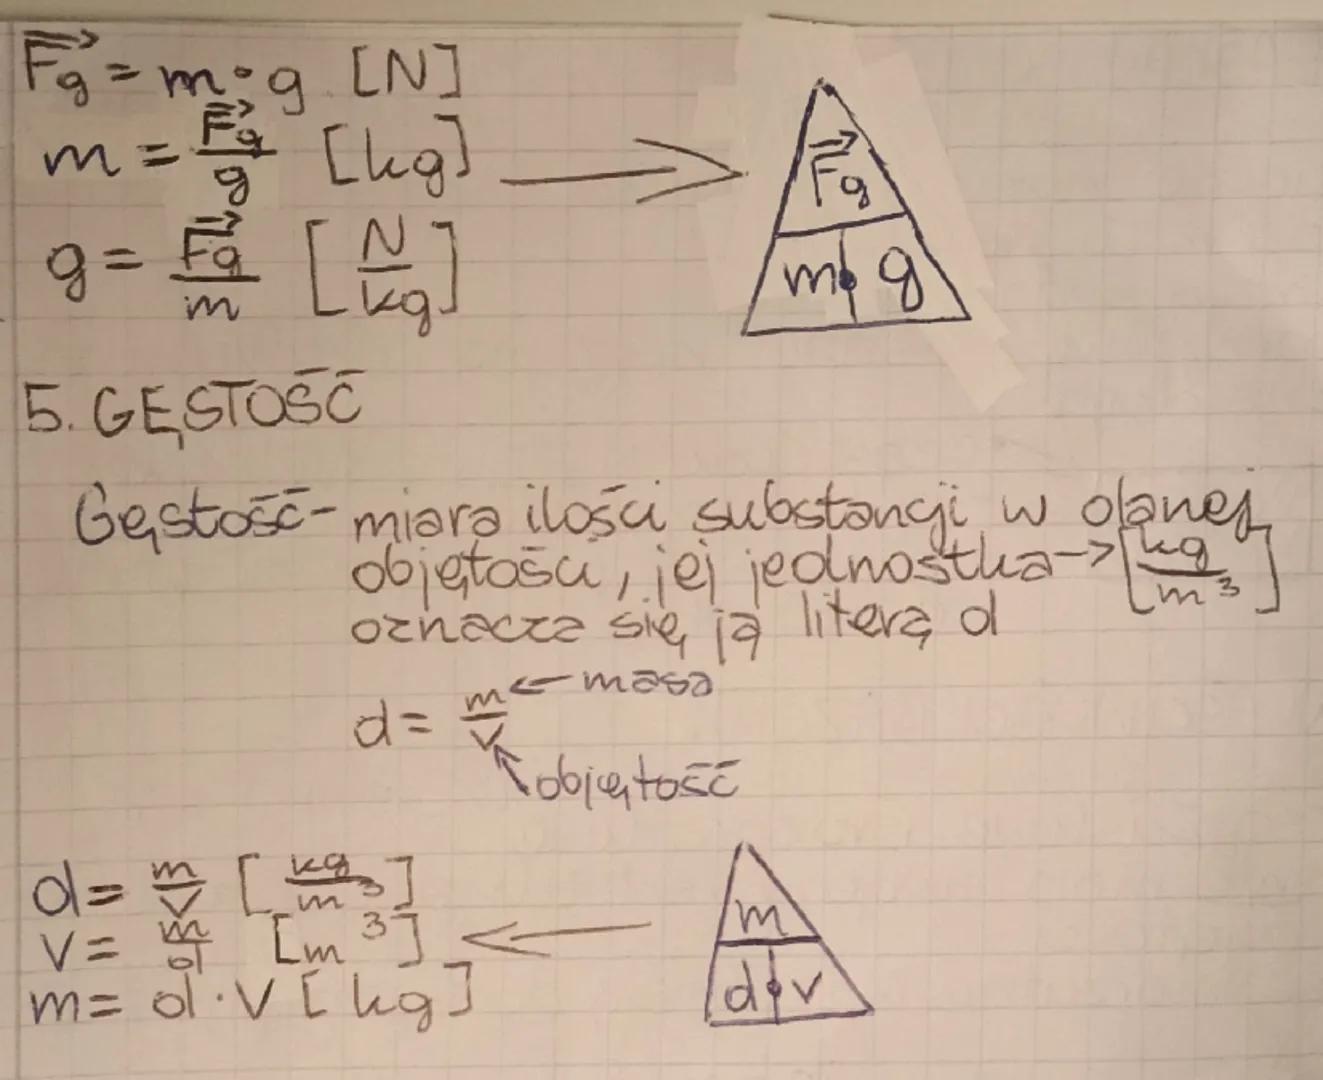 F⃗g = m · g [N]
m = F⃗g/g [kg]
g = F⃗g/m [N/kg]
F⃗g
m · g
5. GĘSTOŚĆ
Gęstość - miara ilości substancji w danej
objętości, jej jednostka → [kg/m³]
oznacza się ją literą d
d = m/V ← masa
objętość
d = m/V [kg/m³]
V = m/d [m³]
m = d · V [kg]
m
d · V